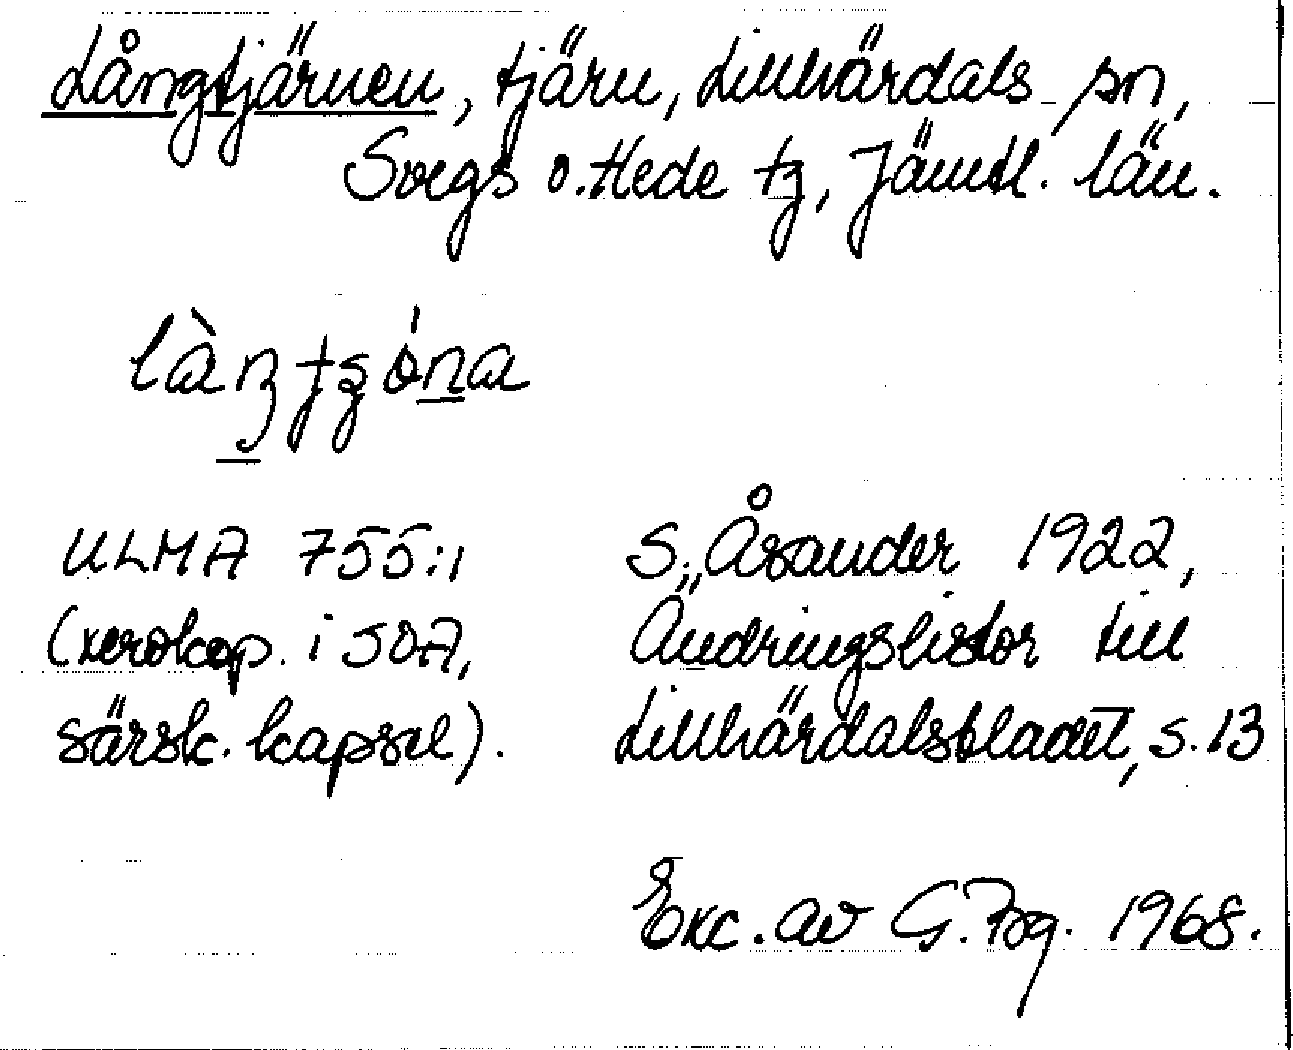 Långtjärnen, tjärn, Lillhärdals sn,
Svegs o. Hede tg, Jämtl. län.
ULMA 755:1
S. Åsander 1922,
(xerokop. i SOA,
Ändringslistor till
särsk. kapsel).
Lillhärdalsbladet, s. 13
Exc. av G. Fbg. 1968.